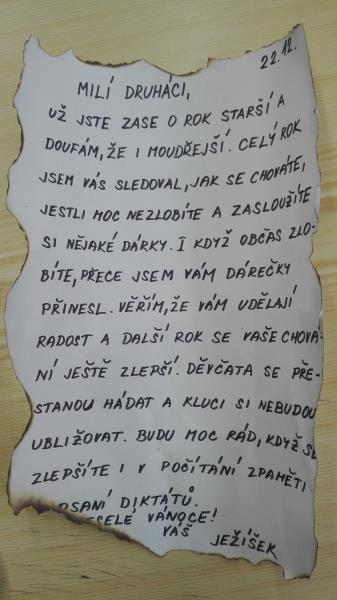 22.12.
MILÍ DRUHÁCI,
UŽ JSTE ZASE O ROK STARŠÍ A
DOUFÁM, ŽE I MOUDŘEJŠÍ. CELÝ ROK
JSEM VÁS SLEDOVAL, JAK SE CHOVÁTE,
JESTLI MOC NEZLOBÍTE A ZASLOUŽÍTE
SI NĚJAKÉ DÁRKY. I KDYŽ OBČAS ZLO-
BÍTE, PŘECE JSEM VÁM DÁREČKY
PŘINESL. VĚŘÍM, ŽE VÁM UDĚLAJÍ
RADOST A DALŠÍ ROK SE VAŠE CHOVÁ-
NÍ JEŠTĚ ZLEPŠÍ. DĚVČATA SE PŘE-
STANOU HÁDAT A KLUCI SI NEBUDOU
UBLIŽOVAT. BUDU MOC RÁD, KDYŽ SE
ZLEPŠÍTE I V POČÍTÁNÍ ZPAMĚTI
PSANÍ DIKTÁTŮ.
VESELÉ VÁNOCE!
VÁŠ
JEŽÍŠEK